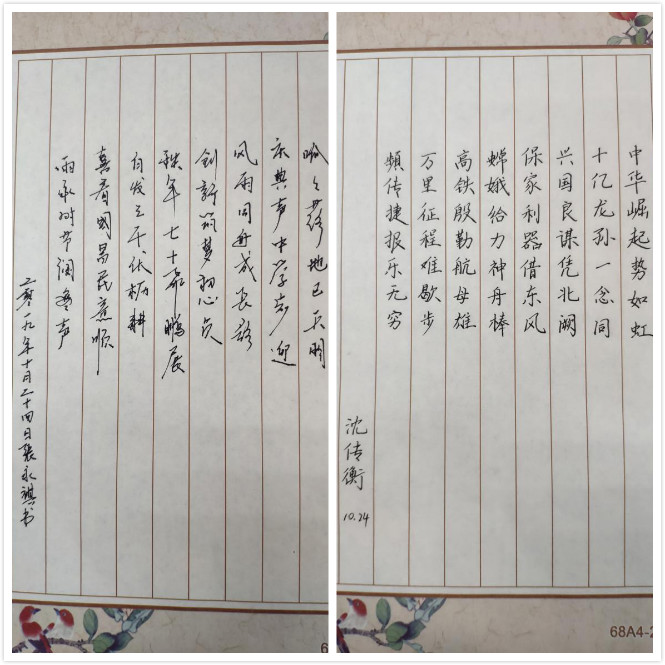 地已天明
庆典声中学步迎
风雨同舟成长路
创新筑梦初心
年七十鹏展
白发三千伏枥耕
喜看国昌民意顺
雨承时节润声
二零一九年十月二十四日张永祺书
中华崛起势如虹
十亿龙孙一念同
兴国良谋凭北阙
保家利器借东风
嫦娥给力神舟棒
高铁殷勤航母雄
万里征程难歇步
频传捷报乐无穷
沈传衡
10.24
68A4-2
6